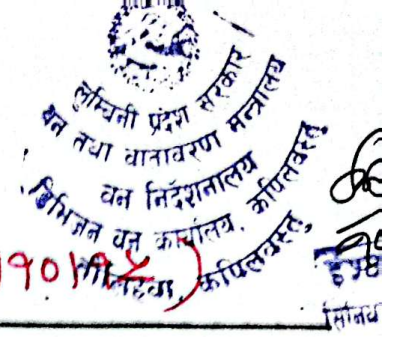 लुम्बिनी प्रदेश सरकार
वन तथा वातावरण मन्त्रालय
वन निर्देशनालय
डिभिजन वन कार्यालय, कपिलवस्तु
कपिलवस्तु